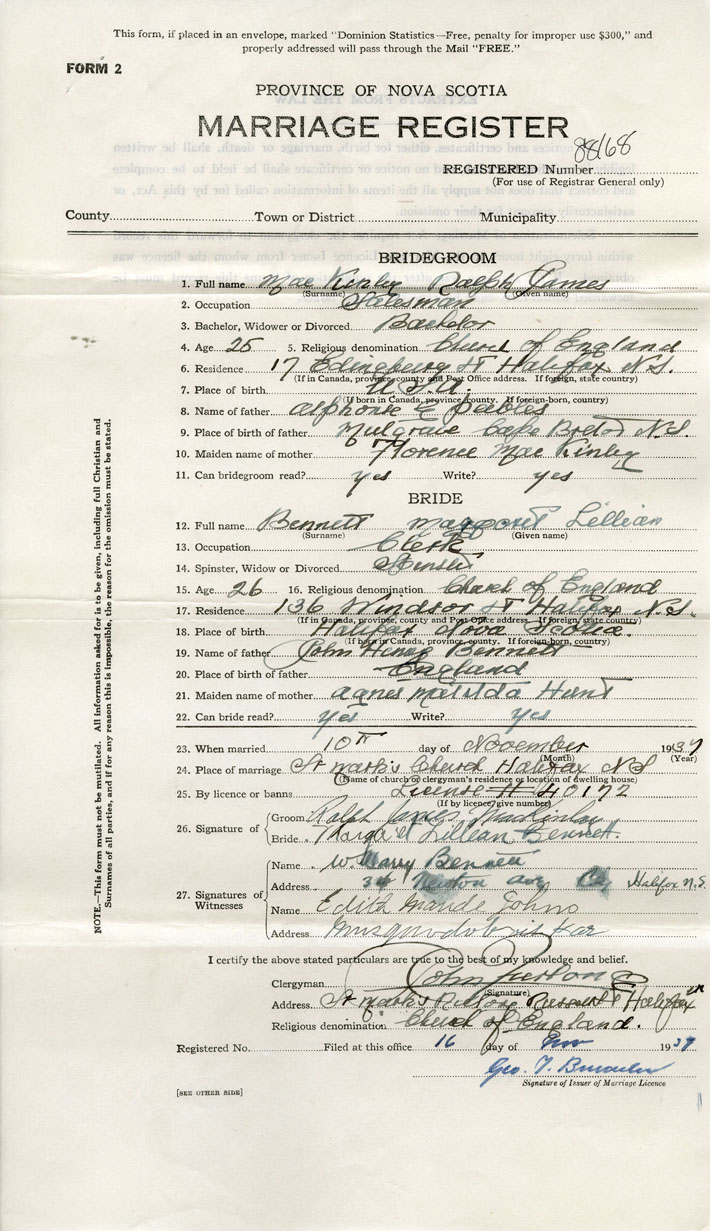 This form, if placed in an envelope, marked "Dominion Statistics—Free, penalty for improper use $300," and
properly addressed will pass through the Mail "FREE."
FORM 2
PROVINCE OF NOVA SCOTIA
MARRIAGE REGISTER
88168
REGISTERED Number
(For use of Registrar General only)
County Town or District Municipality
BRIDEGROOM
1. Full name Mac Kinley Ralph James
(Surname) (Given name)
2. Occupation Salesman
3. Bachelor, Widower or Divorced Bachelor
4. Age 25 5. Religious denomination Church of England
6. Residence 17 Edingburg St Halifax N.S.
(If in Canada, province, county and Post Office address. If foreign, state country)
7. Place of birth U.S.A.
(If born in Canada, province, county. If foreign-born, country)
8. Name of father Alphonse E Peebles
9. Place of birth of father Mulgrave Cape Breton N.S.
10. Maiden name of mother Florence Mac Kinley
11. Can bridegroom read? yes Write? yes
BRIDE
12. Full name Bennett Margaret Lillian
(Surname) (Given name)
13. Occupation Clerk
14. Spinster, Widow or Divorced Spinster
15. Age 26 16. Religious denomination Church of England
17. Residence 136 Windsor St Halifax N.S.
(If in Canada, province, county and Post Office address. If foreign, state country)
18. Place of birth Halifax Nova Scotia.
(If born in Canada, province, county. If foreign-born, country)
19. Name of father John Henry Bennett
20. Place of birth of father England
21. Maiden name of mother Agnes Matilda Hunt
22. Can bride read? Yes Write? Yes
23. When married 10th day of November 1937
(Month) (Year)
24. Place of marriage St Mark's Church Halifax N S
(Name of church or clergyman's residence or location of dwelling house)
25. By licence or banns License # 40172
(If by licence give number)
26. Signature of Groom Ralph James MacKinley
Bride Margaret Lillian Bennett.
27. Signatures of Witnesses
Name W. Harry Bennett
Address 34 Newton Ave Halifax N.S.
Name Edith Maude Johns
Address Musquodoboit Har
I certify the above stated particulars are true to the best of my knowledge and belief.
Clergyman John
(Signature)
Address St Mark's Russell St Halifax
Religious denomination Church of England.
Registered No. Filed at this office 16 day of Nov 1937
Geo. T.
Signature of Issuer of Marriage Licence
[SEE OTHER SIDE]
NOTE.—This form must not be mutilated. All information asked for is to be given, including full Christian and
Surnames of all parties, and if for any reason this is impossible, the reason for the omission must be stated.